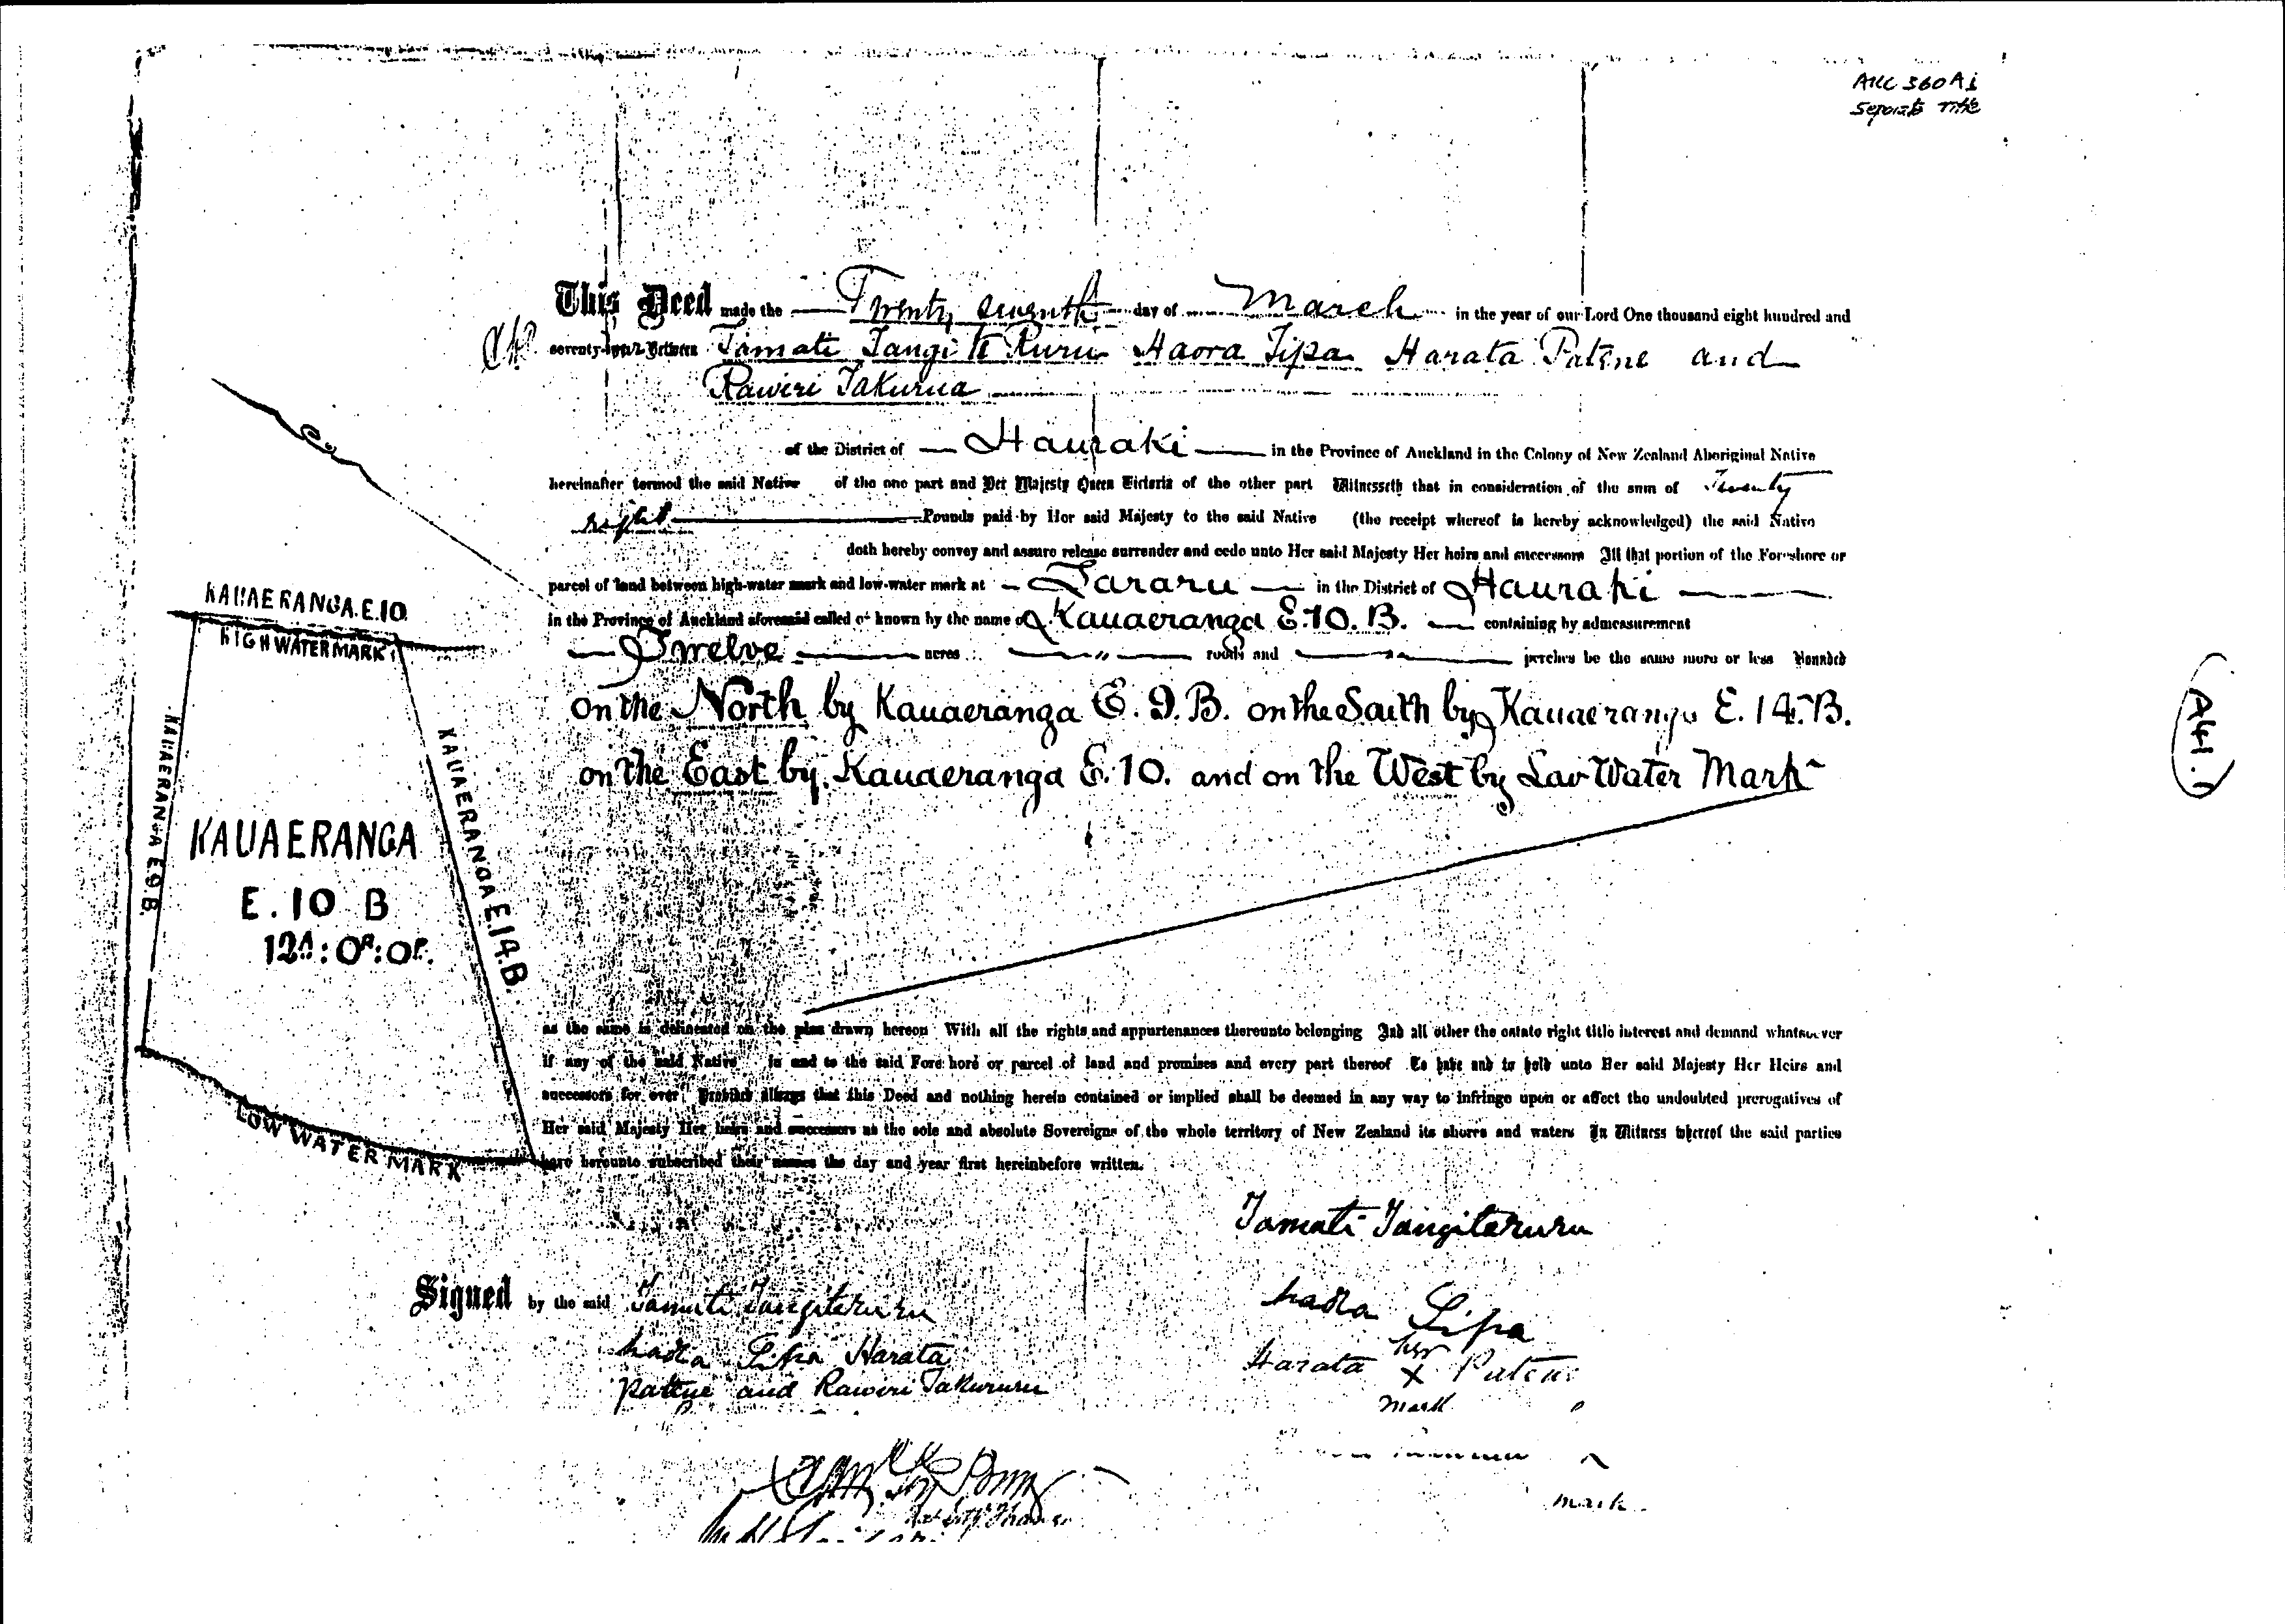 AKC 360Ai
Separate Title
This Deed made the Twenty seventh day of March in the year of our Lord One thousand eight hundred and
seventy-four Between Tamati Tangi te Ruru Haora Tipa Harata Patene and
Rawiri Takurua
of the District of Hauraki in the Province of Auckland in the Colony of New Zealand Aboriginal Native
hereinafter termed the said Native of the one part and Her Majesty Queen Victoria of the other part Witnesseth that in consideration of the sum of Twenty
eight Pounds paid by Her said Majesty to the said Native (the receipt whereof is hereby acknowledged) the said Native
doth hereby convey and assure release surrender and cede unto Her said Majesty Her heirs and successors All that portion of the Foreshore or
parcel of land between high-water mark and low-water mark at Tararu in the District of Hauraki
in the Province of Auckland aforesaid called or known by the name of Kauaeranga E.10.B. containing by admeasurement
Twelve acres " roods and " perches be the same more or less Bounded
on the North by Kauaeranga E.9.B. on the South by Kauaeranga E.14.B.
on the East by Kauaeranga E.10. and on the West by Low Water Mark
KAUAERANGA.E.10.
HIGH WATER MARK
KAUAERANGA E9.B.
KAUAERANGA E.14.B.
KAUAERANGA
E.10 B
12A:0R:0P.
LOW WATER MARK
(A41.)
as the same is delineated on the plan drawn hereon With all the rights and appurtenances thereunto belonging And all other the estate right title interest and demand whatsoever
if any of the said Native in and to the said Foreshore or parcel of land and premises and every part thereof To have and to hold unto Her said Majesty Her Heirs and
successors for ever Provided always that this Deed and nothing herein contained or implied shall be deemed in any way to infringe upon or affect the undoubted prerogatives of
Her said Majesty Her heirs and successors as the sole and absolute Sovereigns of the whole territory of New Zealand its shores and waters In Witness whereof the said parties
have hereunto subscribed their names the day and year first hereinbefore written.
Tamati Tangiteruru
Signed by the said Tamati Tangiteruru
haora Tipa Harata
patene and Rawiri Takururu
haora Tipa
her
Harata x Patene
mark
mark